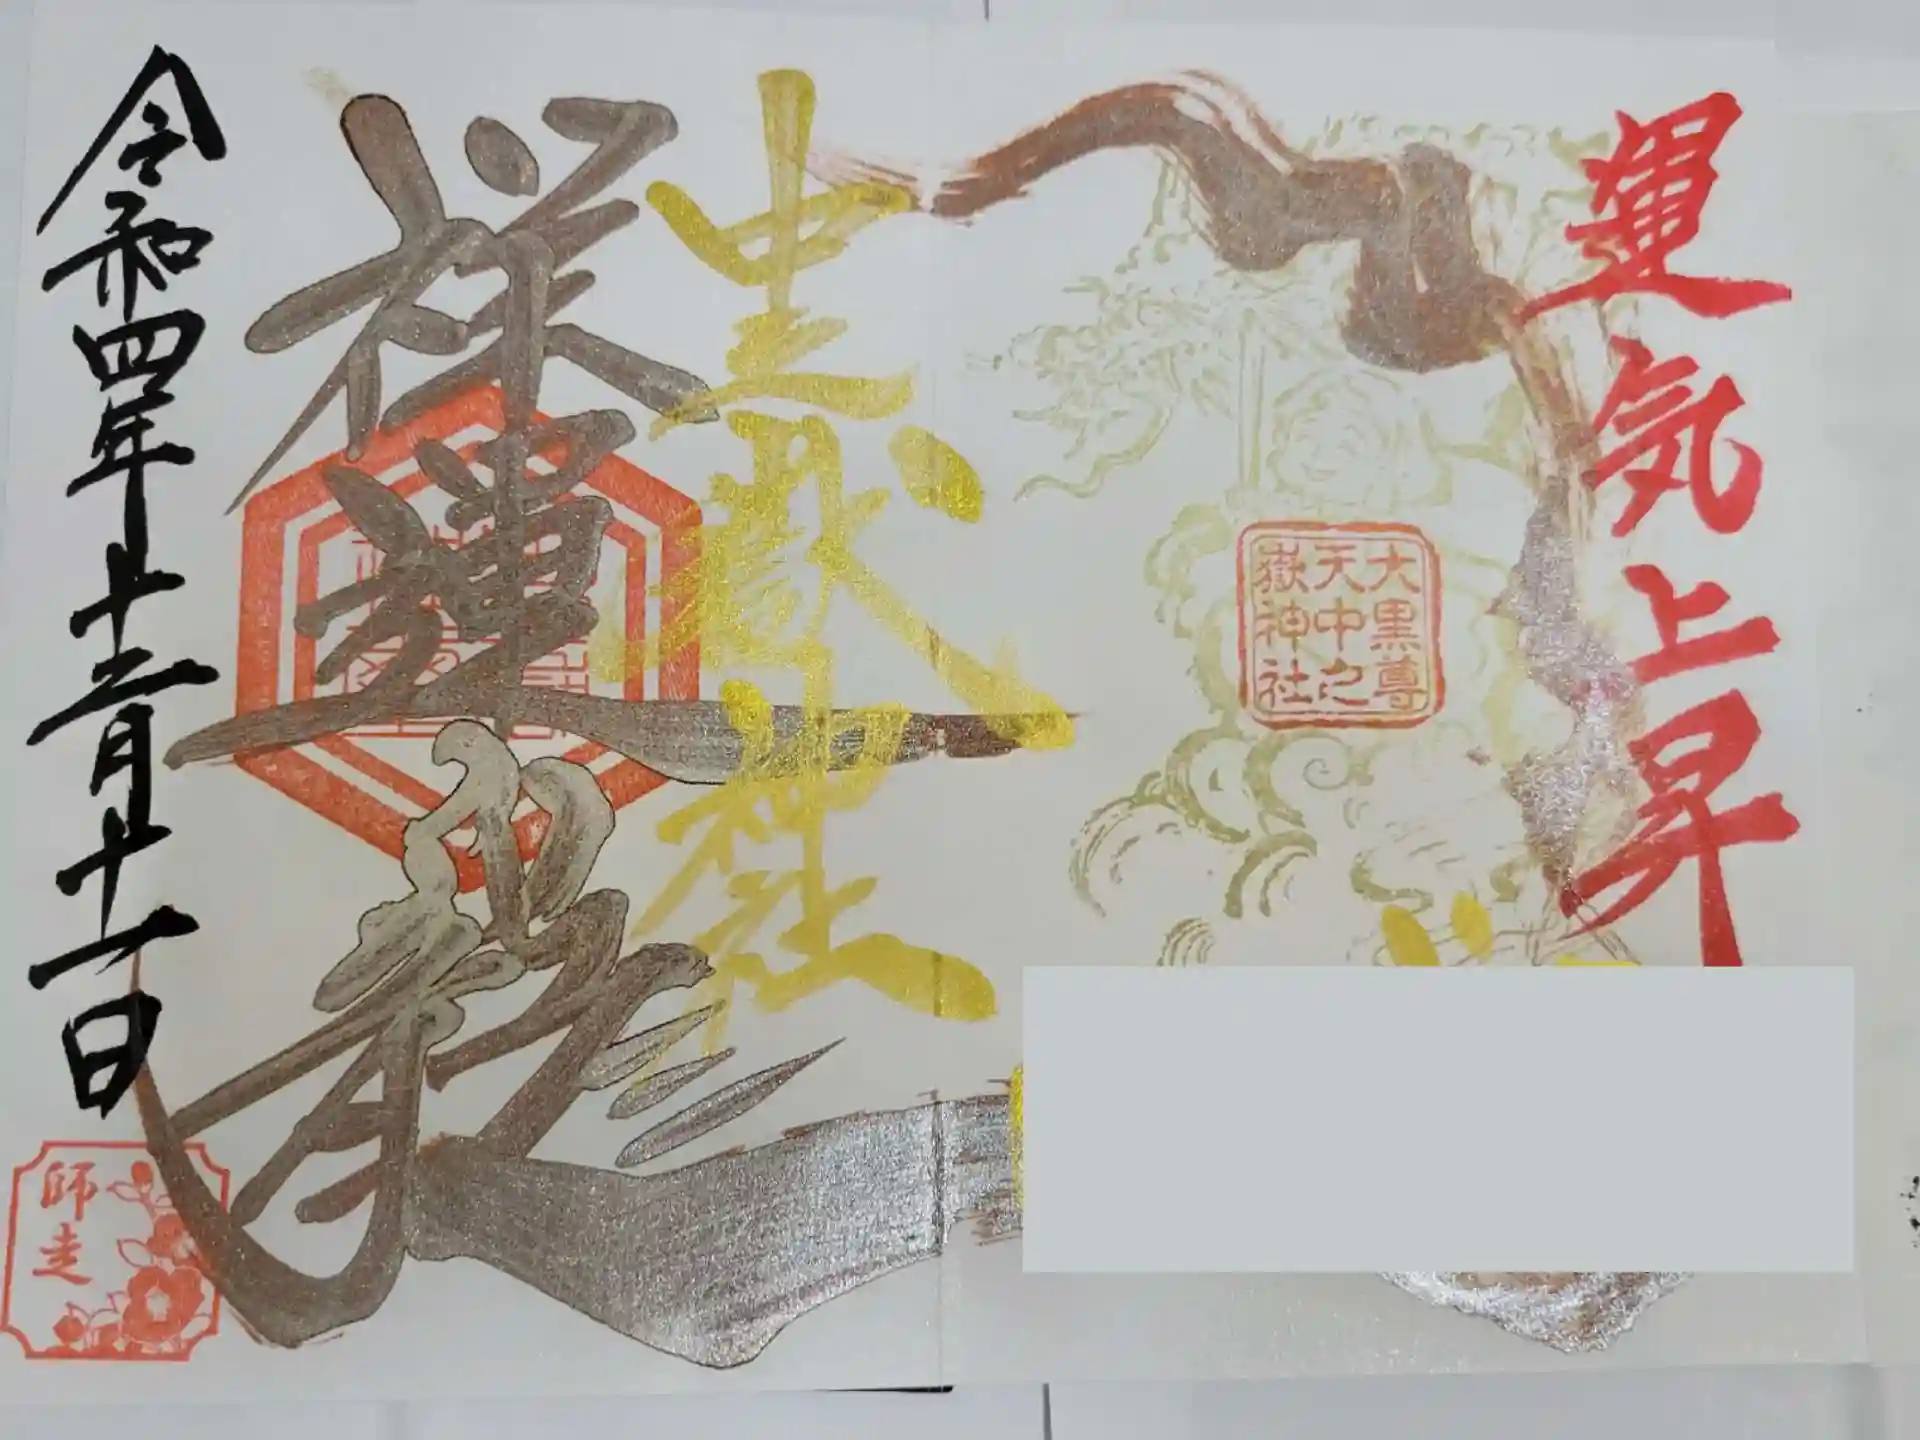 運気上昇
大黒尊
天中之
嶽神社
中之嶽神社
祥運龍
令和四年十二月十一日
師走